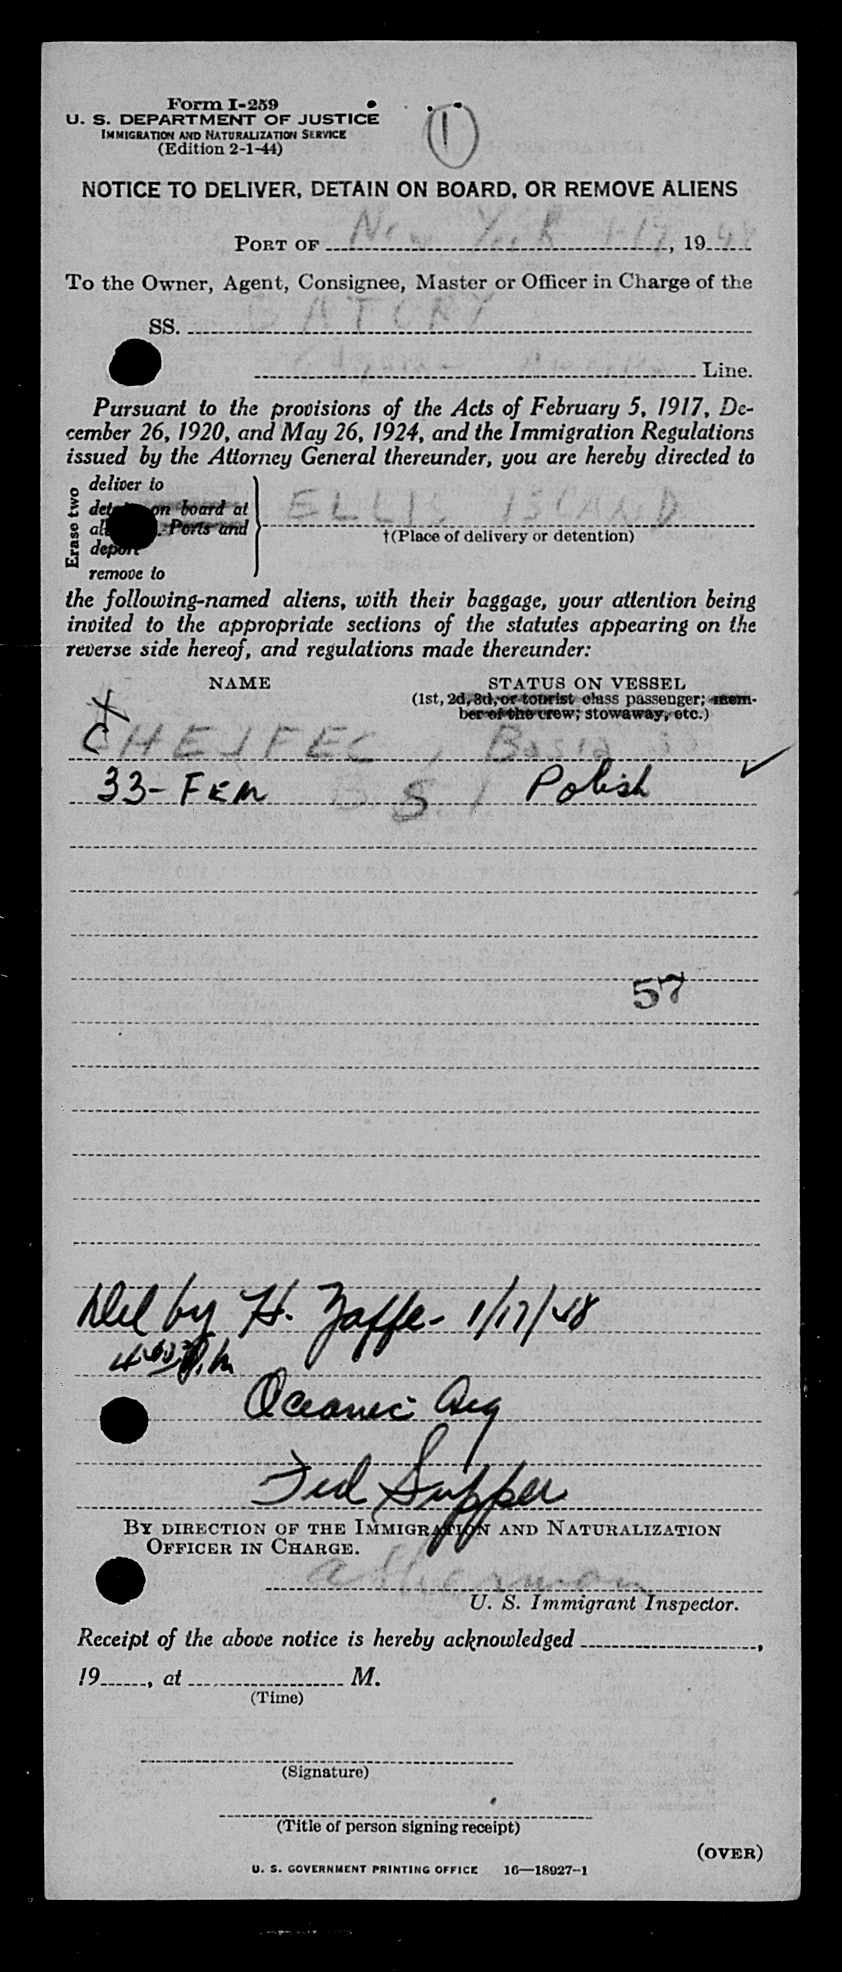 Form I-259
(1)
U. S. DEPARTMENT OF JUSTICE
IMMIGRATION AND NATURALIZATION SERVICE
(Edition 2-1-44)
NOTICE TO DELIVER, DETAIN ON BOARD, OR REMOVE ALIENS
PORT OF New York 1-17, 1948
To the Owner, Agent, Consignee, Master or Officer in Charge of the
SS. BATORY
Line.
Pursuant to the provisions of the Acts of February 5, 1917, De-
cember 26, 1920, and May 26, 1924, and the Immigration Regulations
issued by the Attorney General thereunder, you are hereby directed to
Erase two
deliver to
detain on board at
Ports and
deport
remove to
ELLIS ISLAND
†(Place of delivery or detention)
the following-named aliens, with their baggage, your attention being
invited to the appropriate sections of the statutes appearing on the
reverse side hereof, and regulations made thereunder:
NAME STATUS ON VESSEL
(1st, 2d, 3d, or tourist class passenger; mem-
ber of the crew; stowaway, etc.)
X
CHEJFEC, Basia
33- FEM B S I Polish ✓
57
Del by H. Zaffe- 1/17/48
Oceanic
Ted Supper
BY DIRECTION OF THE IMMIGRATION AND NATURALIZATION
OFFICER IN CHARGE.
U. S. Immigrant Inspector.
Receipt of the above notice is hereby acknowledged ,
19 , at M.
(Time)
(Signature)
(Title of person signing receipt)
(OVER)
U. S. GOVERNMENT PRINTING OFFICE 16—18927-1